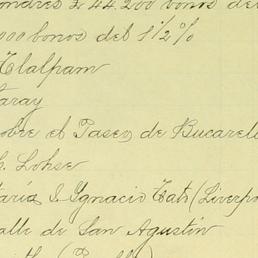 ondres £ 44.200 bonos del
000 bonos del 1½%
Tlalpam
aray
obre el Paseo de Bucarel
Lohse
taría S. Ygnacio Cath (Liverpo
alle de San Agustin